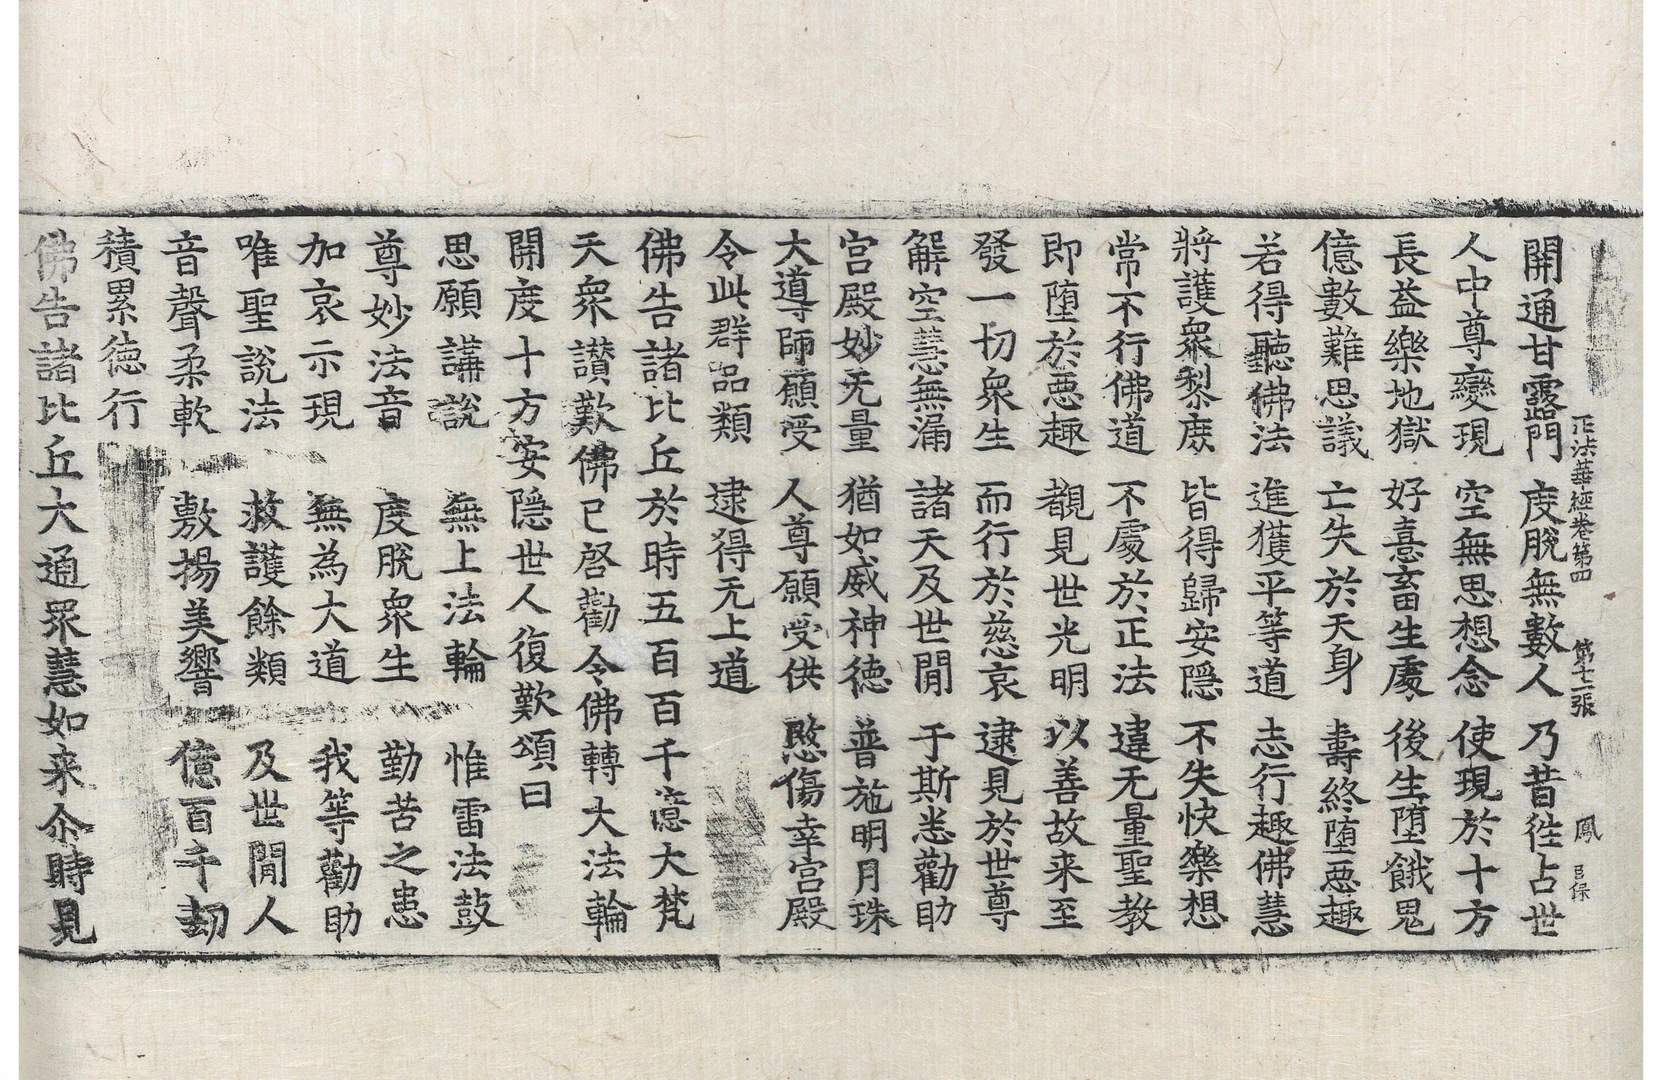 正法華經卷第四　第十一張　鳳　巨保
開通甘露門　度脫無數人　乃昔徃占世
人中尊變現　空無思想念　使現於十方
長益樂地獄　好憙畜生處　後生墮餓鬼
億數難思議　亡失於天身　壽終墮惡趣
若得聽佛法　進獲平等道　志行趣佛慧
將護衆黎庶　皆得歸安隱　不失快樂想
常不行佛道　不處於正法　違无量聖教
即墮於惡趣　覩見世光明　以善故来至
發一切衆生　而行於慈哀　逮見於世尊
解空慧無漏　諸天及世閒　于斯悉勸助
宮殿妙无量　猶如威神德　普施明月珠
大導師願受　人尊願受供　愍傷幸宮殿
令此群品類　逮得无上道
佛告諸比丘於時五百百千億大梵
天衆讃歎佛已啓勸令佛轉大法輪
開度十方安隱世人復歎頌曰
思願講說　無上法輪　惟雷法鼓
尊妙法音　度脫衆生　勤苦之患
加哀示現　無為大道　我等勸助
唯聖說法　救護餘類　及世閒人
音聲柔軟　敷揚美響　億百千劫
積累德行
佛告諸比丘大通衆慧如来尒時見